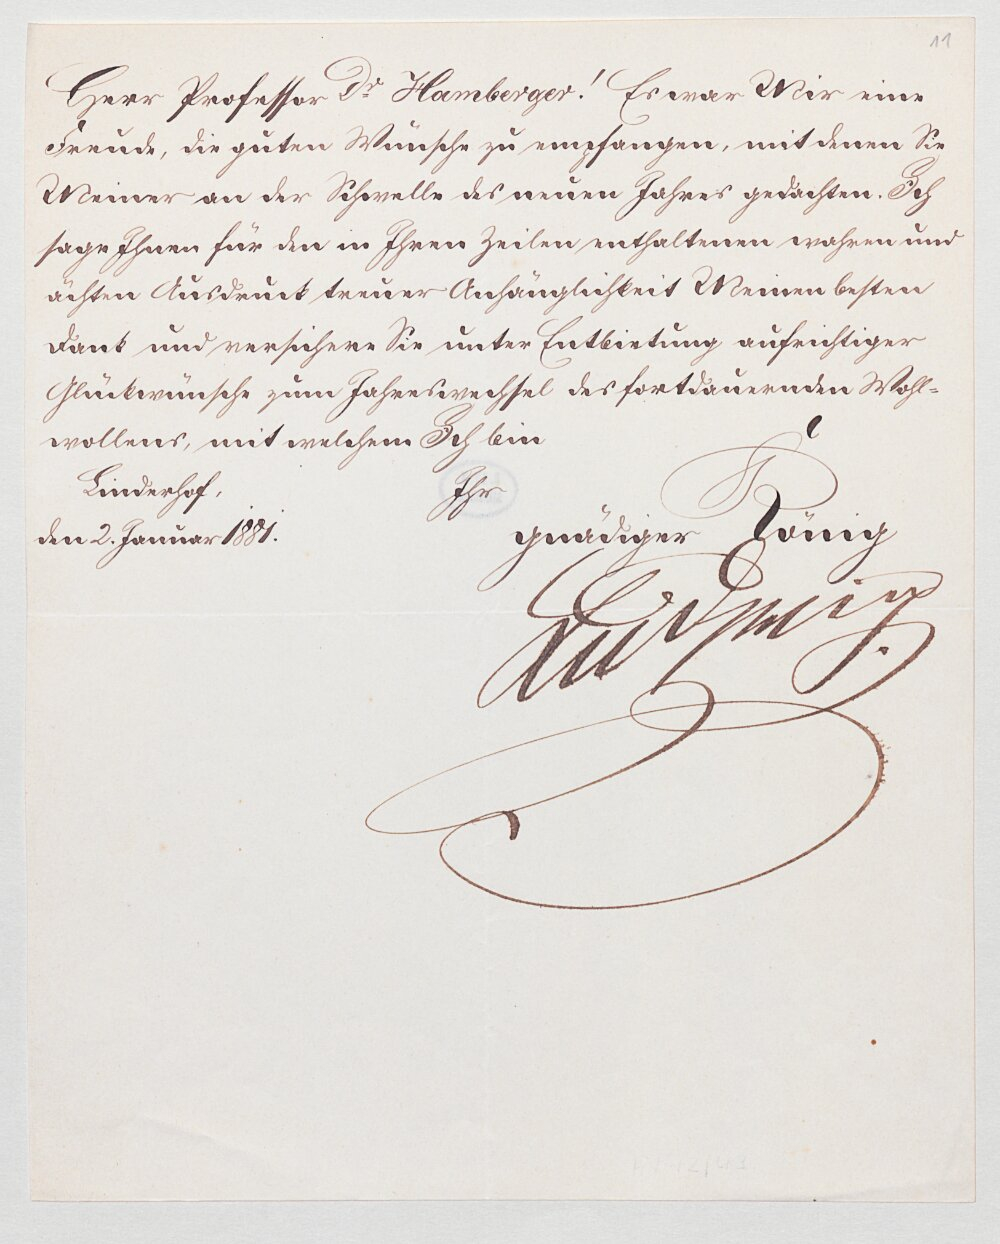 11
Herr Professor Dr. Hamberger! Es war Mir eine
Freude, die guten Wünsche zu empfangen, mit denen Sie
Meiner an der Schwelle des neuen Jahres gedachten. Ich
sage Ihnen für den in Ihren Zeilen enthaltenen wahren und
ächten Ausdruck treuer Anhänglichkeit Meinen besten
Dank und versichere Sie unter Entbietung aufrichtiger
Glückwünsche zum Jahreswechsel des fortdauernden Wohl=
wollens, mit welchem Ich bin
Linderhof,
den 2. Januar 1881.
Ihr
gnädiger König
Ludwig.